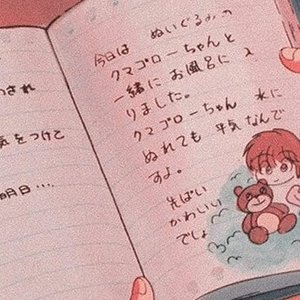 今日は ぬいぐるみの
クマゴローちゃんと
一緒に お風呂に 入
りました。
クマゴローちゃん 水に
ぬれても 平気なんで
すよ。
そばい
かわいい
でしょ
され
気をつけて
明日....